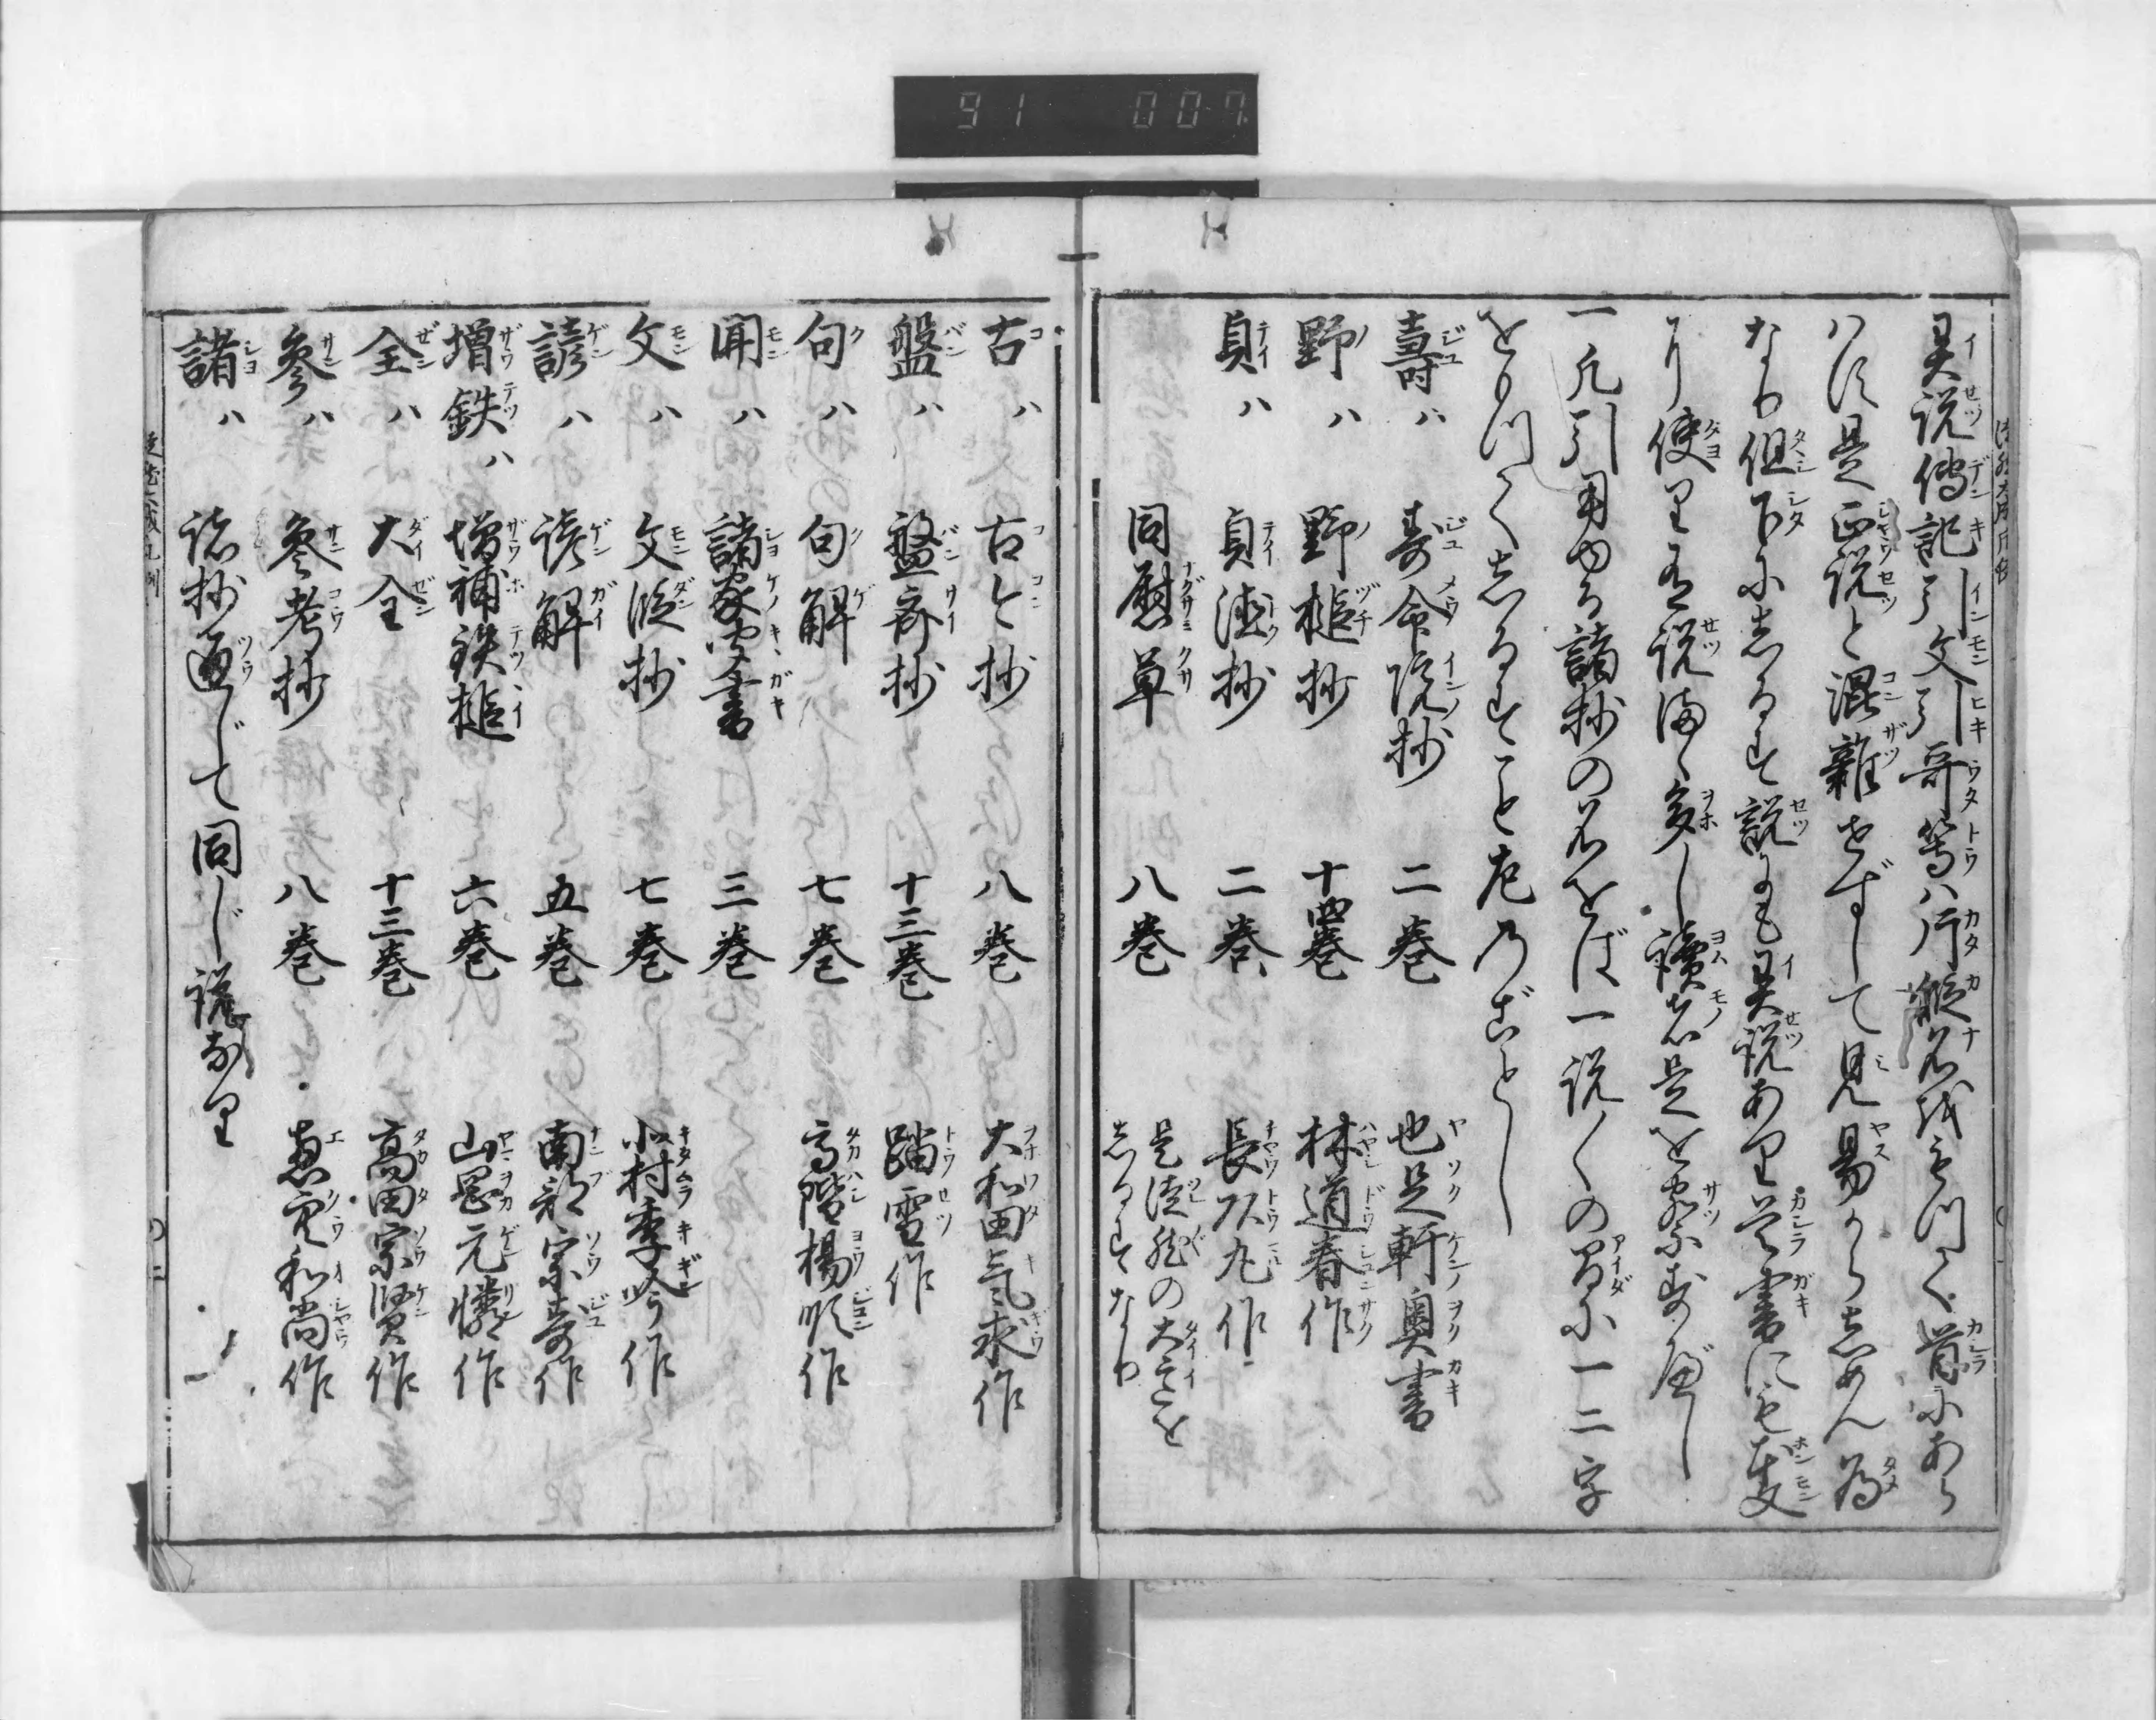 91 007
異説傳記引文引哥等ハ片假名越もつて首にあら
ハす是正説と混雜せずして見易からしめん為
なり但下にしるす説にも異説あり首書にも本文
より便りよき説まゝ多し讀者是を察すべし
一凡引用ゆる諸抄の名をば一説〳〵の間に一二字
をもつてしるすこと左のごとし
壽ハ 寿命院抄 二巻 也足軒奥書
野ハ 野槌抄 十四巻 林道春作
貞ハ 貞徳抄 二巻 長頭丸作
同慰草 八巻 是徒然の大意を
しるすなり
古ハ 古今抄 八巻 大和田氣求作
盤ハ 盤斎抄 十三巻 踏雪作
句ハ 句解 七巻 高階楊順作
聞ハ 諸家聞書 三巻
文ハ 文段抄 七巻 北村季吟作
諺ハ 諺解 五巻 南部宗寿作
増鉄ハ 増補鉄槌 六巻 山岡元憐作
全ハ 大全 十三巻 高田宗賢作
參ハ 參考抄 八巻 恵空和尚作
諸ハ 諸抄通じて同じ説なり